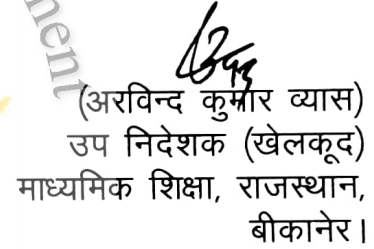 (अरविन्द कुमार व्यास)
उप निदेशक (खेलकूद)
माध्यमिक शिक्षा, राजस्थान,
बीकानेर।